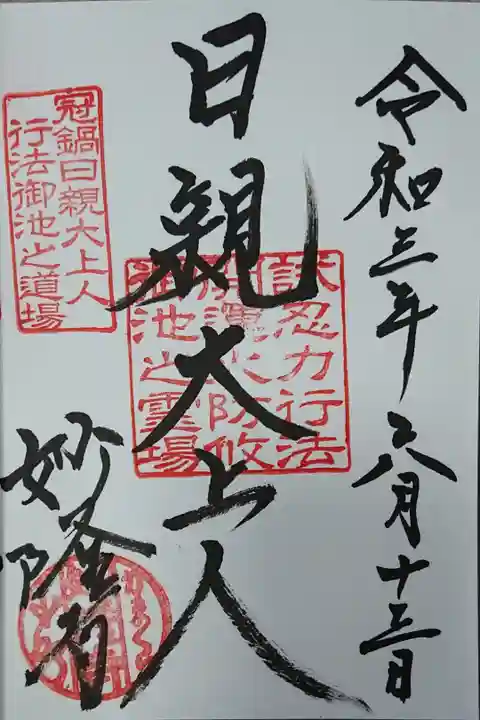 令和三年六月十三日
日親大上人
試忍力行法
池之霊場
冠鍋日親大上人
行法御池之道場
妙隆